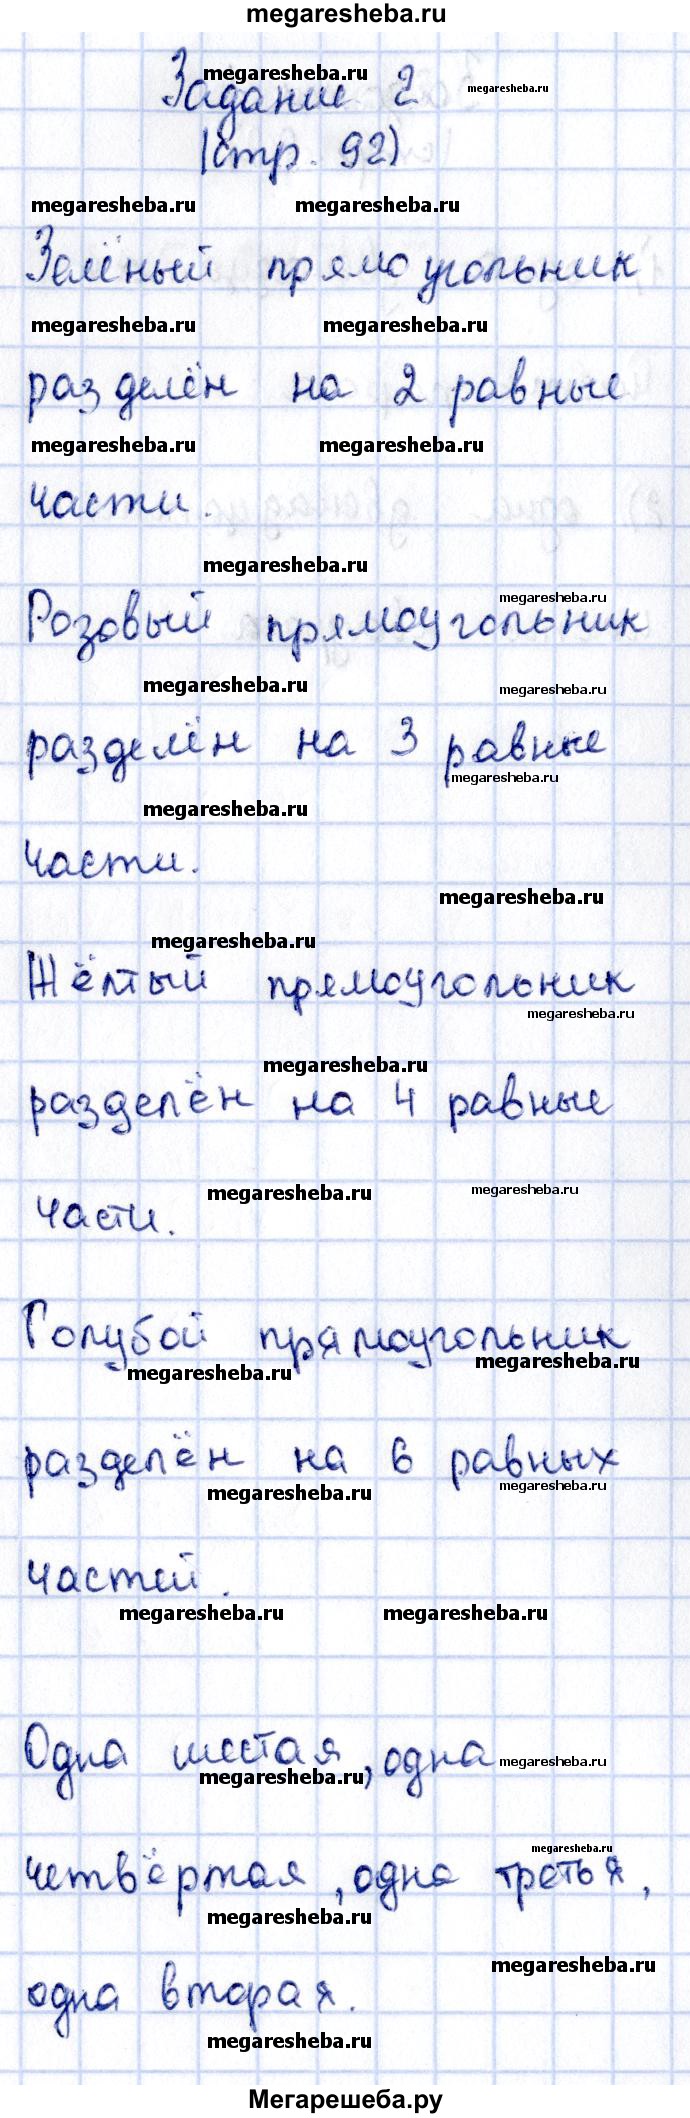 megaresheba.ru
megaresheba.ru
Задание 2
megaresheba.ru
(стр. 92)
megaresheba.ru megaresheba.ru
Зелёный прямоугольник
megaresheba.ru megaresheba.ru
разделён на 2 равные
megaresheba.ru megaresheba.ru
части.
megaresheba.ru
megaresheba.ru
Розовый прямоугольник
megaresheba.ru megaresheba.ru
разделён на 3 равные
megaresheba.ru
megaresheba.ru
части.
megaresheba.ru
megaresheba.ru
Жёлтый прямоугольник
megaresheba.ru
megaresheba.ru
разделён на 4 равные
megaresheba.ru megaresheba.ru
части.
Голубой прямоугольник
megaresheba.ru megaresheba.ru
разделён на 6 равных
megaresheba.ru megaresheba.ru
частей.
megaresheba.ru megaresheba.ru
Одна шестая, одна
megaresheba.ru megaresheba.ru
megaresheba.ru
четвёртая, одна третья,
megaresheba.ru
megaresheba.ru
одна вторая.
megaresheba.ru
Мегарешеба.ру